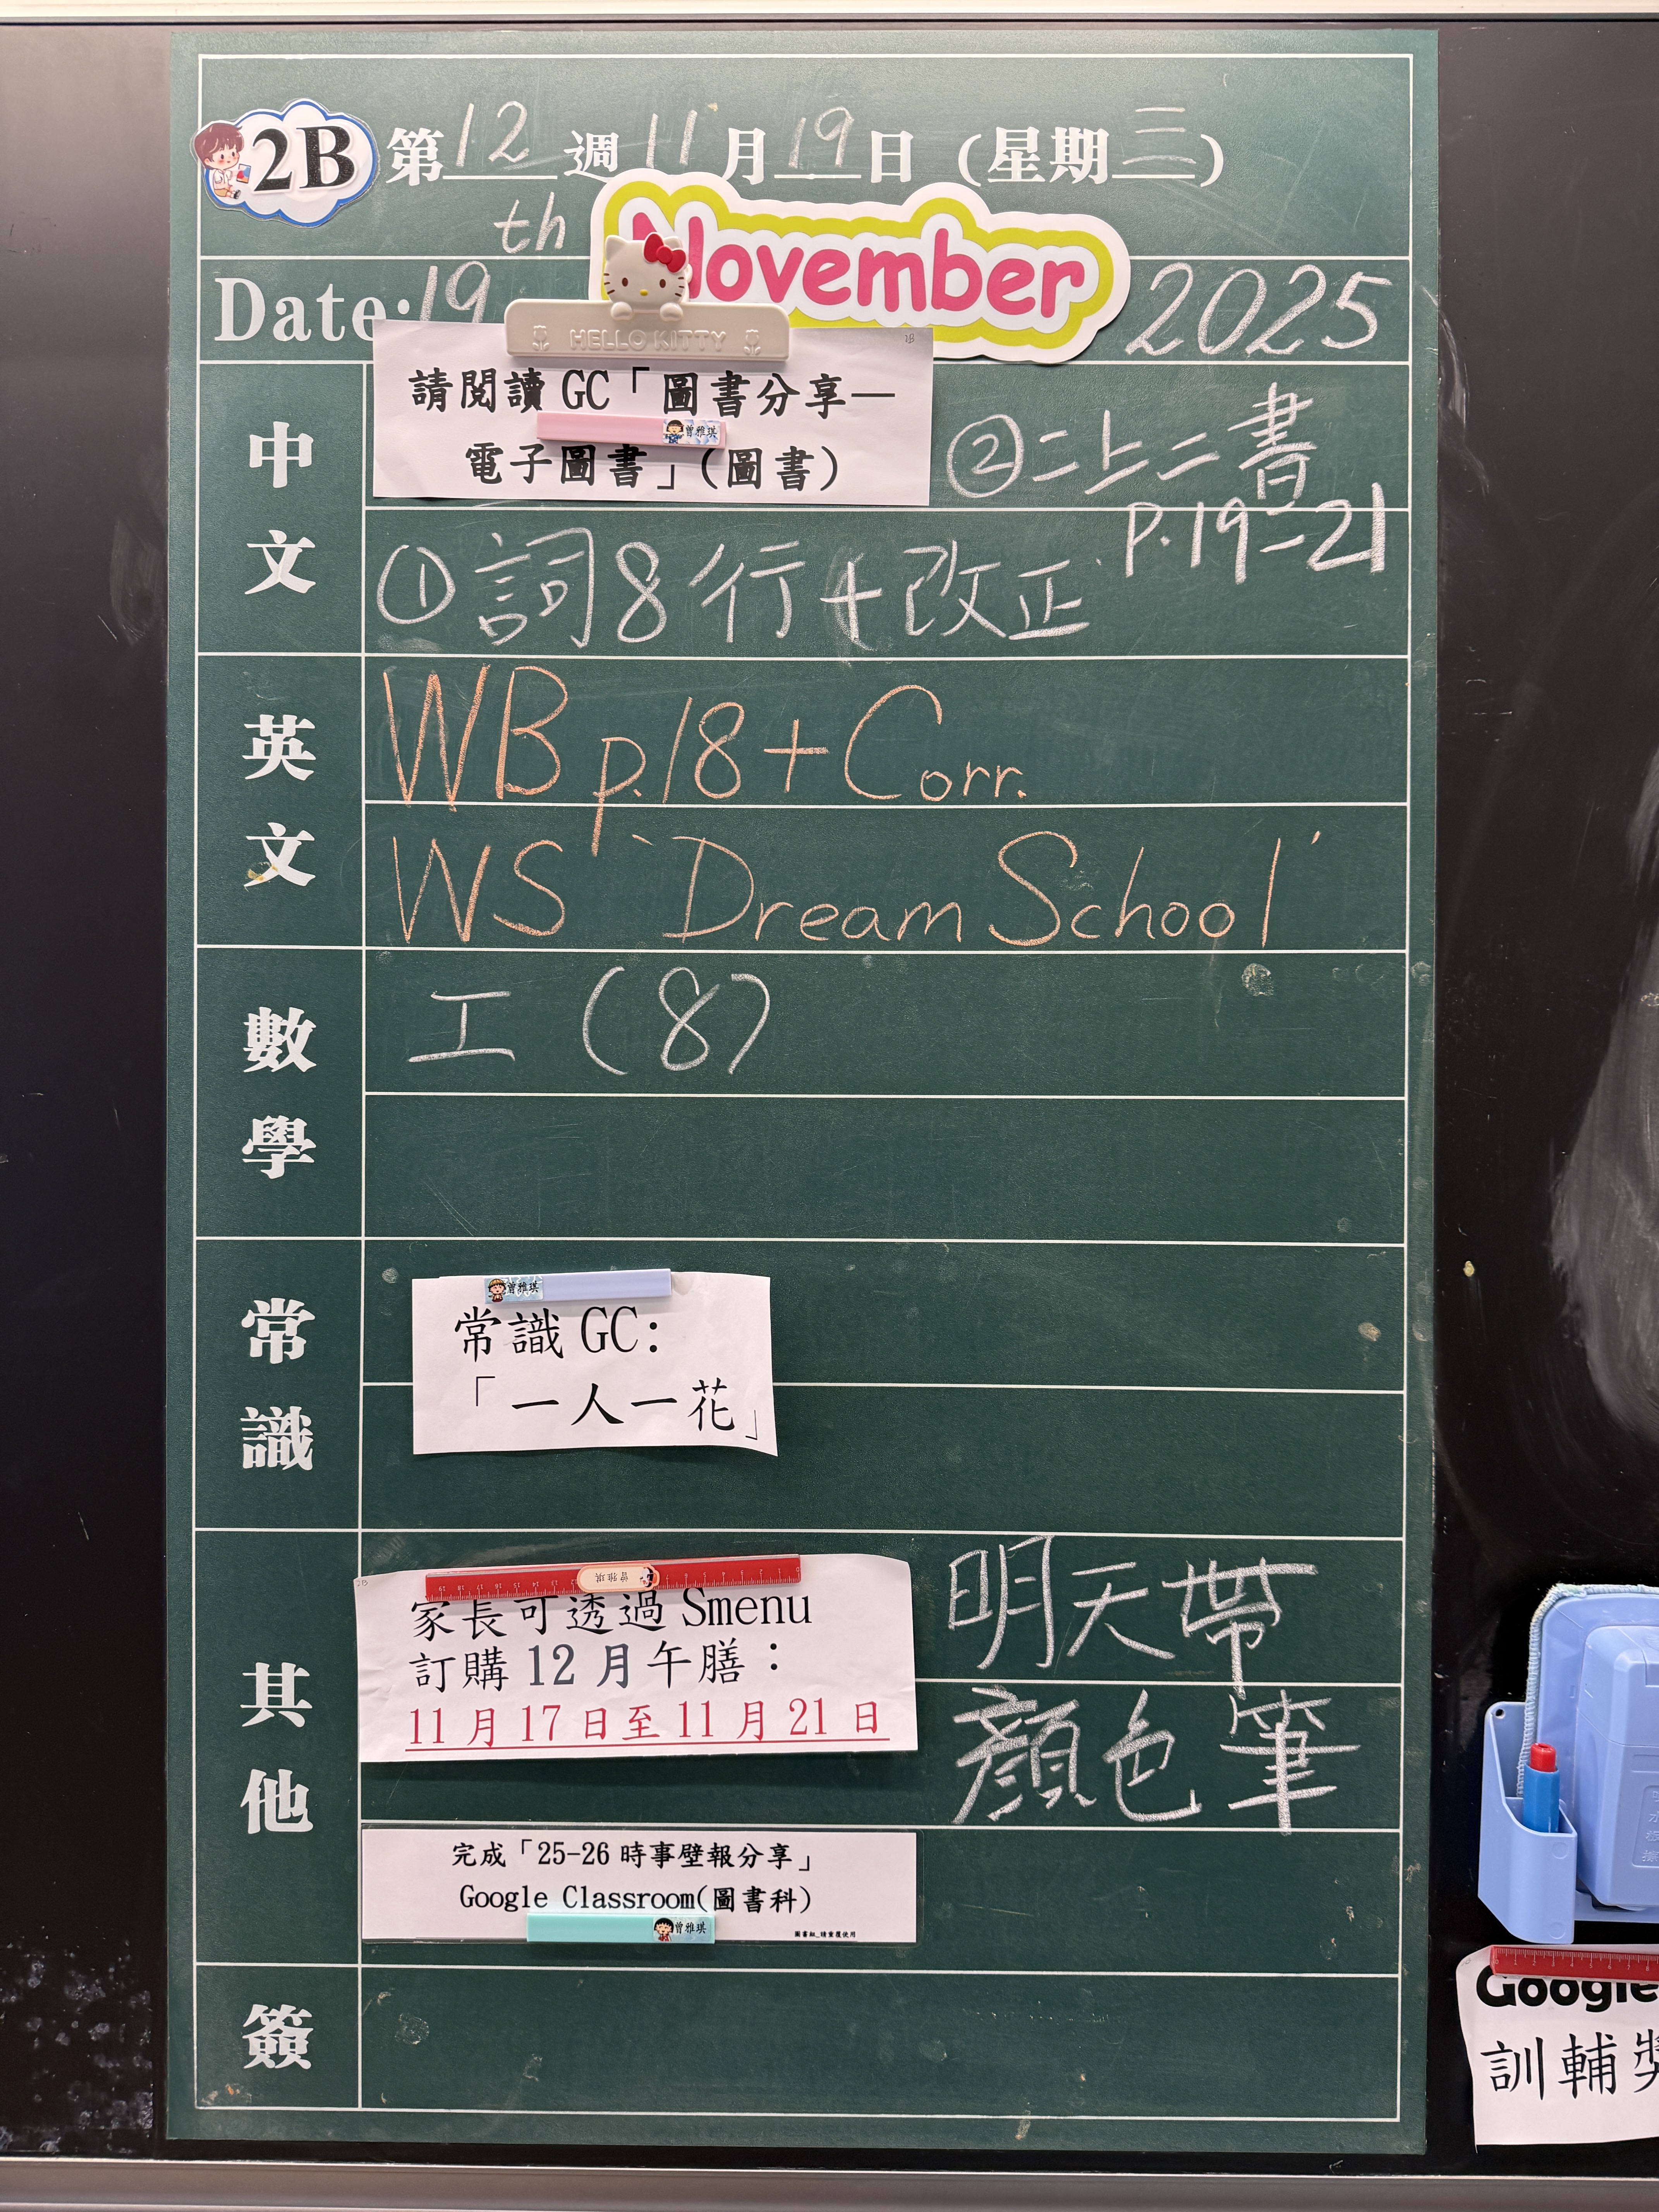 2B 第12週11月19日(星期三)
th
Date:19 November 2025
HELLO KITTY
2B
中文
請閱讀 GC「圖書分享—
曾雅琪
電子圖書」(圖書)
②二上二書
P.19-21
①詞8行+改正
英文
WB p.18+Corr.
WS 'Dream School'
數學
工(8)
常識
曾雅琪
常識 GC:
「一人一花」
其他
曾雅琪
家長可透過 Smenu
訂購 12 月午膳:
11 月 17 日至 11 月 21 日
明天帶
顏色筆
完成「25-26 時事壁報分享」
Google Classroom(圖書科)
曾雅琪
圖書組_請重覆使用
簽
Google
訓輔